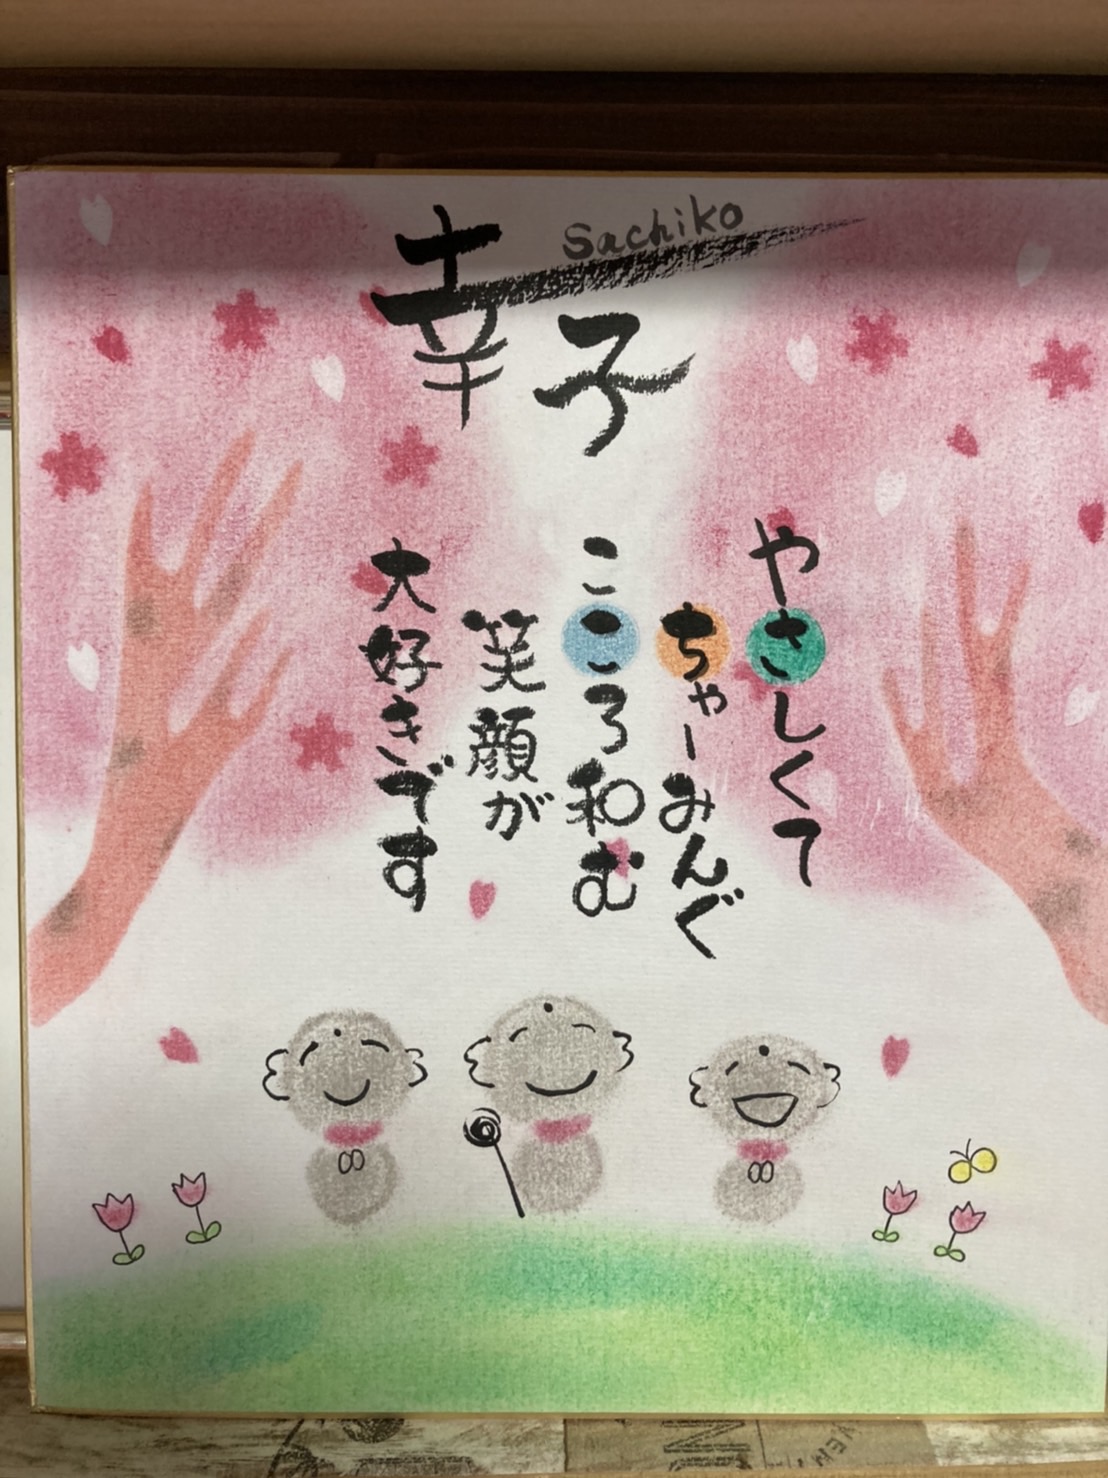 Sachiko
幸子
やさしくて
ちゃーみんぐ
こころ和む
笑顔が
大好きです